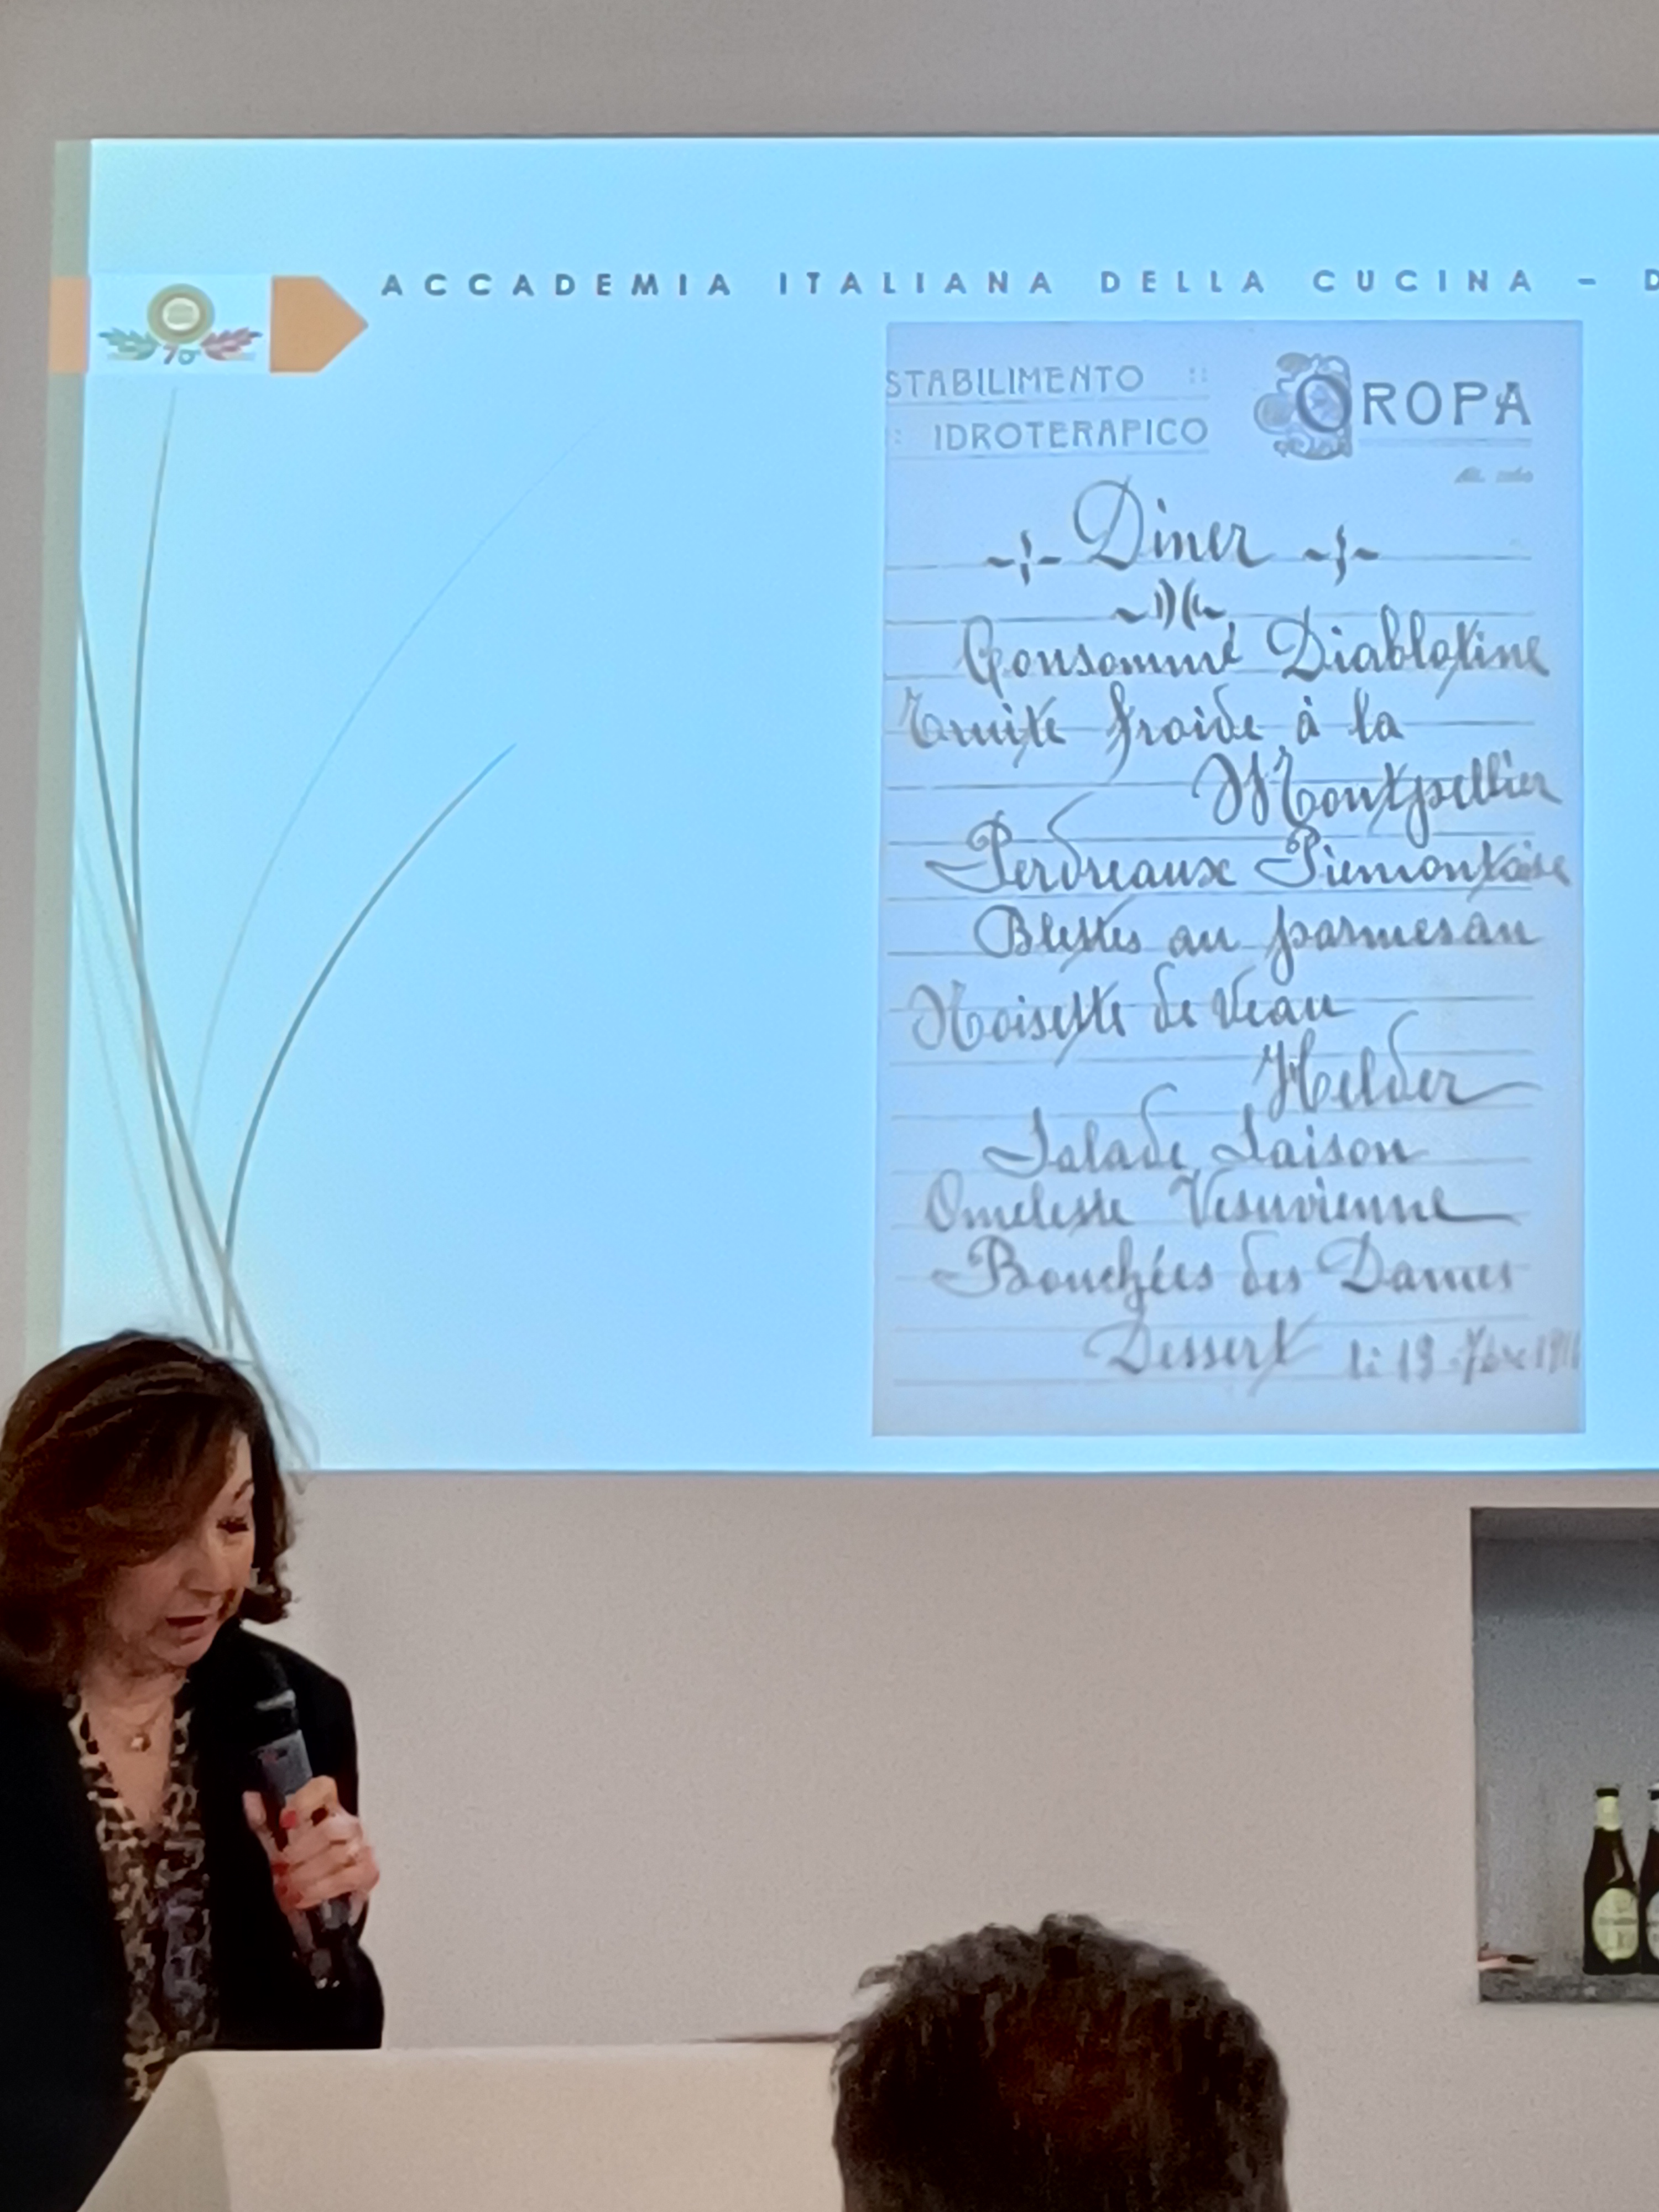 ACCADEMIA ITALIANA DELLA CUCINA – D
70
STABILIMENTO
IDROTERAPICO
OROPA
Diner
Consommé Diablotine
Truite froide à la
Montpellier
Perdreaux Piemontaise
Blettes au parmesan
Noisette de Veau
Helder
Salade Saison
Omelette Vesuvienne
Bouchées des Dames
Dessert li 19